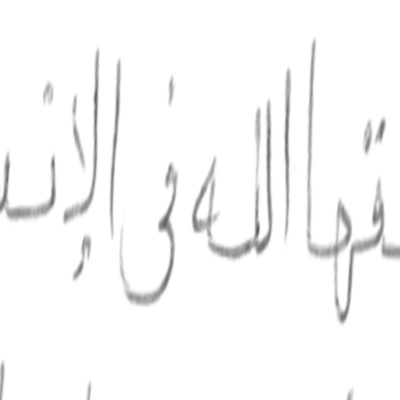 قها الله فى الإنـ